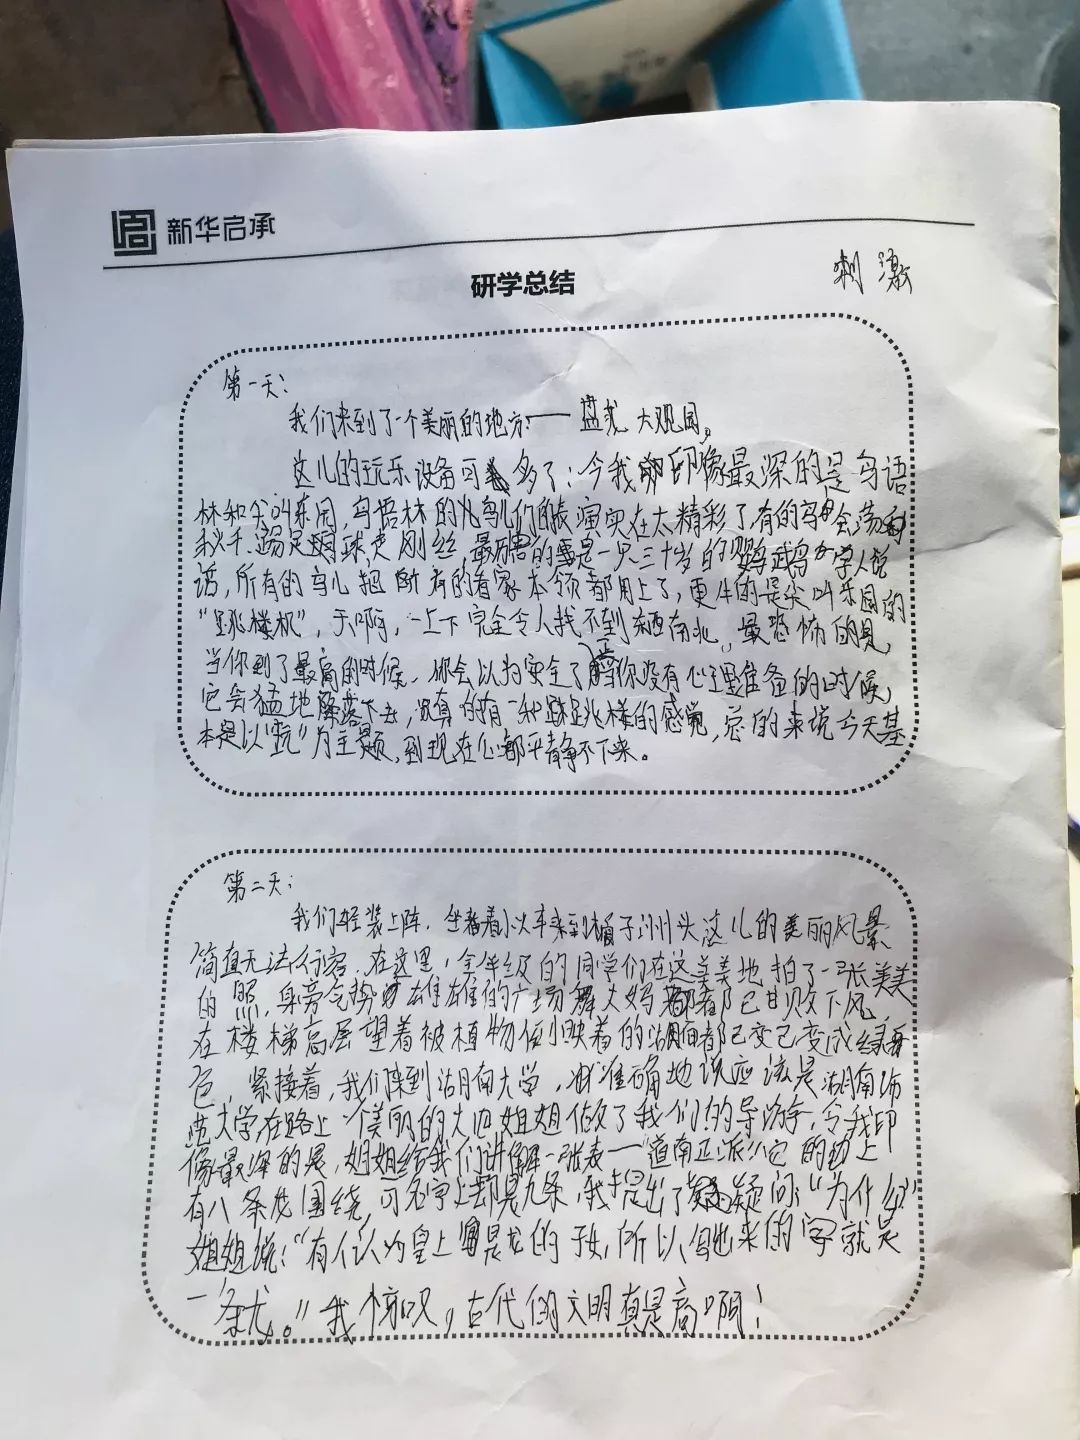 新华启承
研学总结
刺激
第一天：
我们来到了一个美丽的地方——盘龙大观园。
这儿的玩乐设备可多了；令我印像最深的是鸟语
林和尖叫乐园，鸟语林的鸟儿们的表演实在太精彩了，有的鸟会荡
秋千、踢足球、走刚丝，最厉害的是一只三十岁的鹦鹉学人说
话，所有的鸟儿把所有的看家本领都用上了，更牛的是尖叫乐园的
“跳楼机”，天啊，一上下完全令人找不到东西南北，最恐怖的是，
当你到了最高的时候，你会以为安全了，当你没有心理准备的时候，
它会猛地降落下去，真的有一种跳楼的感觉，总的来说今天基
本是以“玩”为主题，到现在心都平静不下来。
第二天：
我们轻装上阵，坐着小火车来到橘子洲头这儿的美丽风景
简直无法形容，在这里，全年级的同学们在这美美地拍了一张美美
的照，身旁气势雄雄的广场舞大妈都已甘败下风，
在楼梯高层望着被植物倒映着的湖面都已变成绿
色，紧接着，我们来到湖南大学，准确地说应该是湖南师
范大学，在路上一个美丽的大四姐姐做了我们的导游，令我印
像最深的是，姐姐给我们讲解一张表——“道南正派”它的边上
有八条龙围绕，可名字上却是九条，我提出了疑问：“为什么？”
姐姐说：“有人认为皇上是龙的子女，所以，写出来的字就是
一条龙。”我惊叹，古代的文明真是高啊！